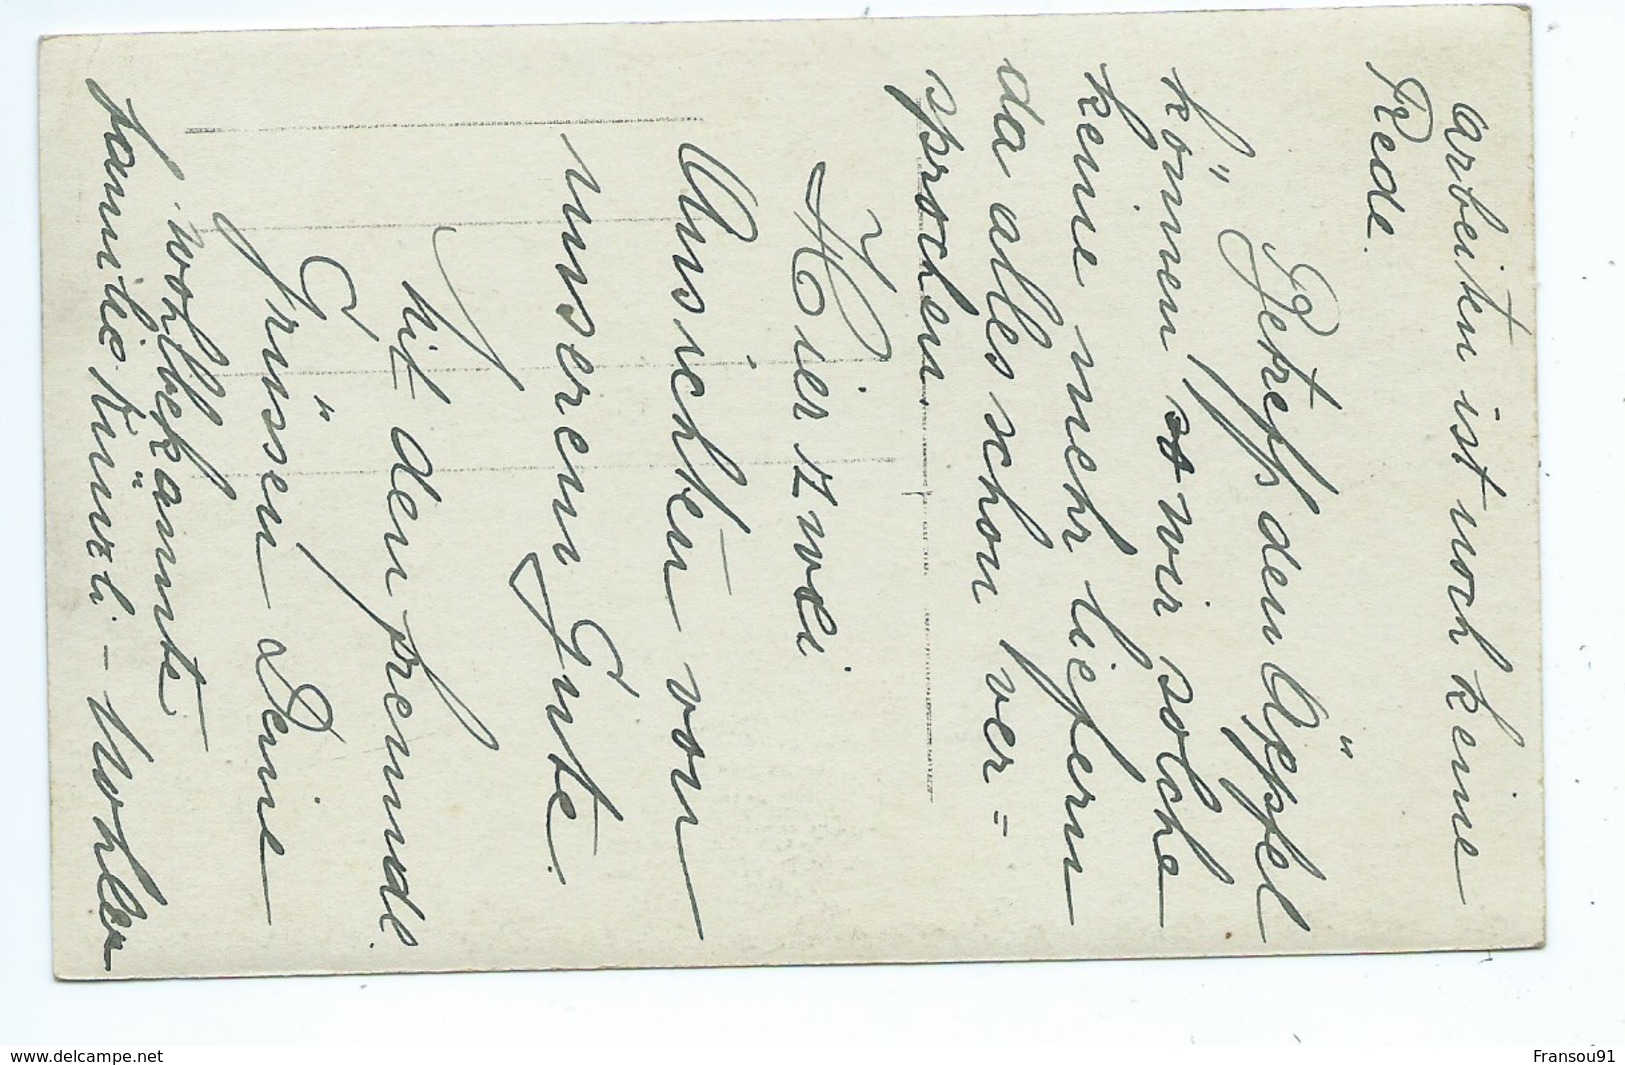 arbeiten ist noch keine
Rede.
Betreff den Äppfel
können wir solche
keine mehr liefern
da alles schon ver=
sprochen.
Hier zwei
Ansichten von
unserem Gute.
Mit den freundl.
Grüssen Deine
wohlbekannte
Familie Künzli. - Wohler
www.delcampe.net
Fransou91